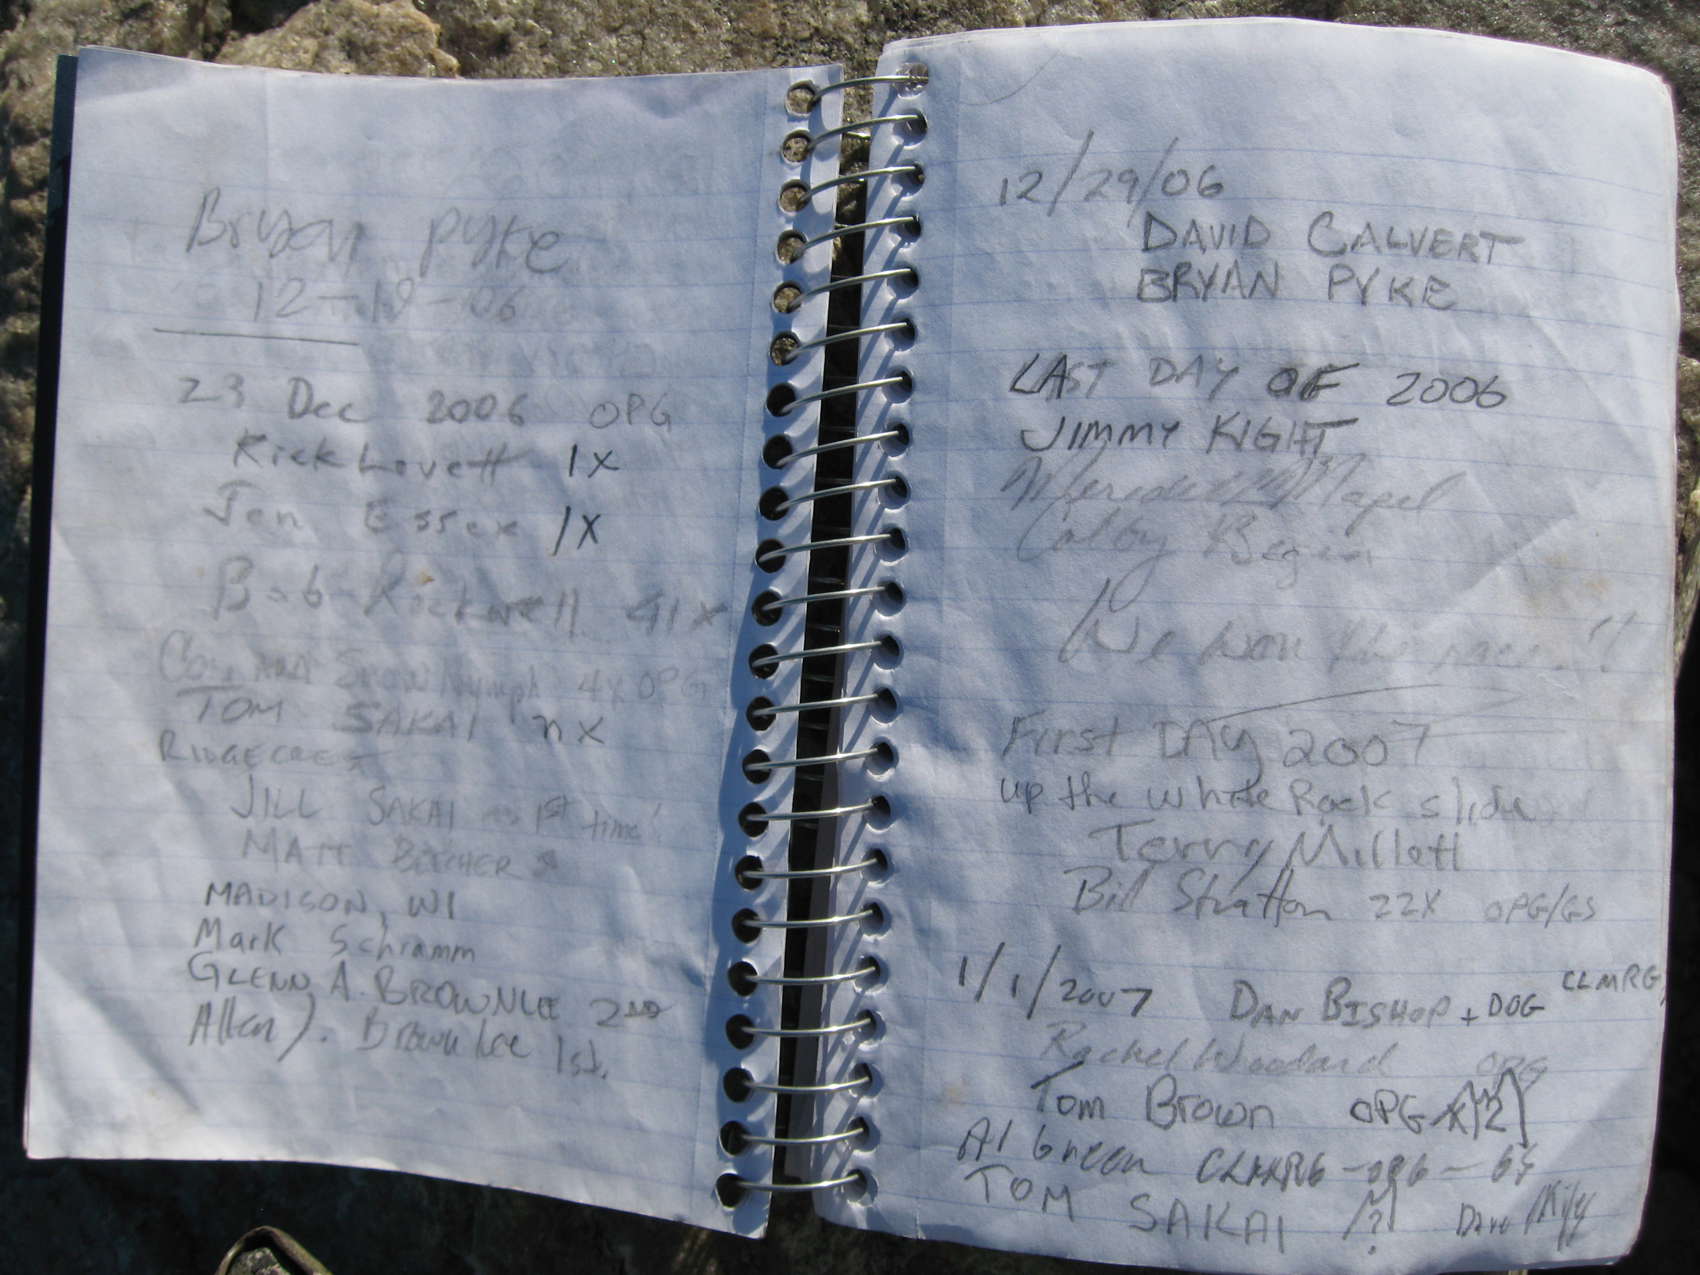 Bryan Pyke
12-18-06
23 Dec 2006 OPG
Rick Lovett 1X
Jen Essex 1X
Bob Rockwell 41X
Snow Nymph 4X OPG
TOM SAKAI nX
RIDGECREST
JILL SAKAI 1ST time!
MATT
MADISON, WI
Mark Schramm
GLENN A. BROWNLEE 2nd
Allan J. Brownlee 1st.
12/29/06
DAVID CALVERT
BRYAN PYKE
LAST DAY OF 2006
JIMMY KIGHT
Meredith Nagel
Colby Begin
We won the race!!
First DAY 2007
up the white Rock slide
Terry Millett
Bill Stratton 22X OPG/GS
1/1/2007 DAN BISHOP + DOG CLMRG
Rachel Woodard OPG
Tom Brown OPG
Al Green CLMRG -OPG-
TOM SAKAI /?/ Dave